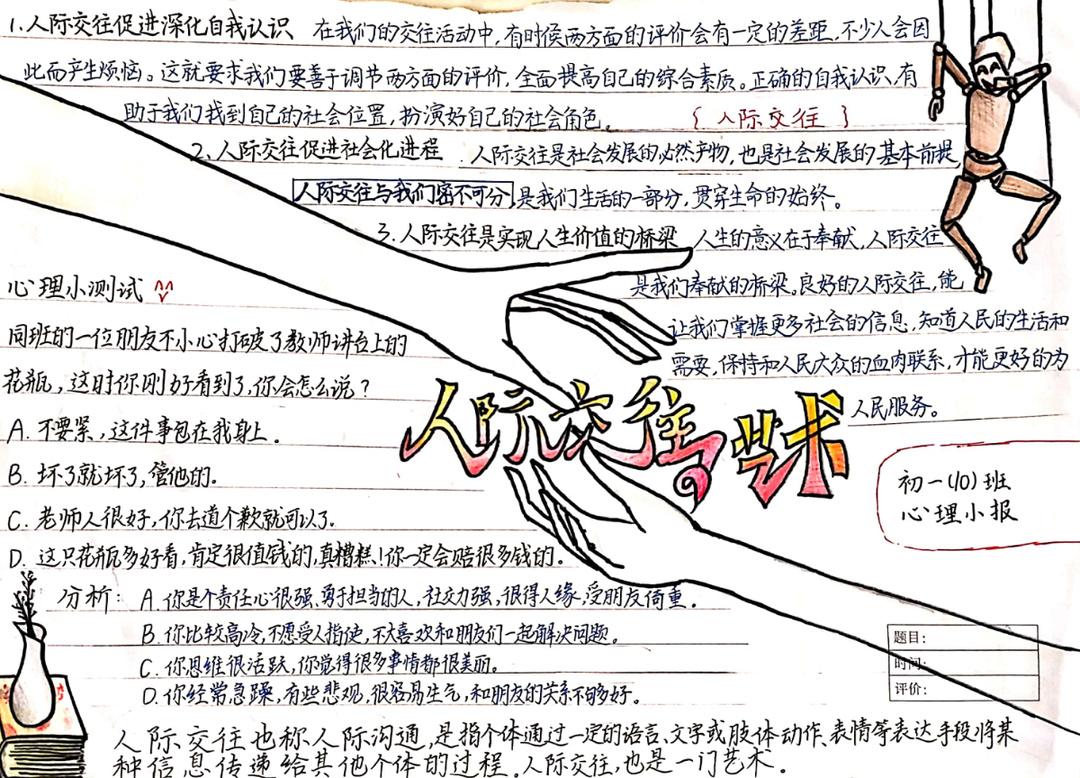 1.人际交往促进深化自我认识 在我们的交往活动中,有时候两方面的评价会有一定的差距,不少人会因
此而产生烦恼。这就要求我们要善于调节两方面的评价,全面提高自己的综合素质。正确的自我认识,有
助于我们找到自己的社会位置,扮演好自己的社会角色。
{ 人际交往 }
2、人际交往促进社会化进程 . 人际交往是社会发展的必然产物,也是社会发展的基本前提
人际交往与我们密不可分,是我们生活的一部分,贯穿生命的始终。
3.人际交往是实现人生价值的桥梁 人生的意义在于奉献,人际交往
是我们奉献的桥梁。良好的人际交往,能
让我们掌握更多社会的信息,知道人民的生活和
需要,保持和人民大众的血肉联系,才能更好的为
人民服务。
心理小测试
同班的一位朋友不小心打破了教师讲台上的
花瓶,这时你刚好看到了,你会怎么说?
A. 不要紧,这件事包在我身上。
B. 坏了就坏了,管他的。
C. 老师人很好,你去道个歉就可以了.
D. 这只花瓶多好看,肯定很值钱的,真糟糕!你一定会赔很多钱的。
人际交往的艺术
初一(10)班
心理小报
分析: A. 你是个责任心很强、勇于担当的人,社交力强,很得人缘,受朋友倚重。
B. 你比较高冷,不愿受人指使,不大喜欢和朋友们一起解决问题。
C. 你思维很活跃,你觉得很多事情都很美丽。
D. 你经常急躁,有些悲观,很容易生气,和朋友的关系不够好。
题目:
时间:
评价:
人际交往也称人际沟通,是指个体通过一定的语言、文字或肢体动作、表情等表达手段将某
种信息传递给其他个体的过程.人际交往,也是一门艺术.